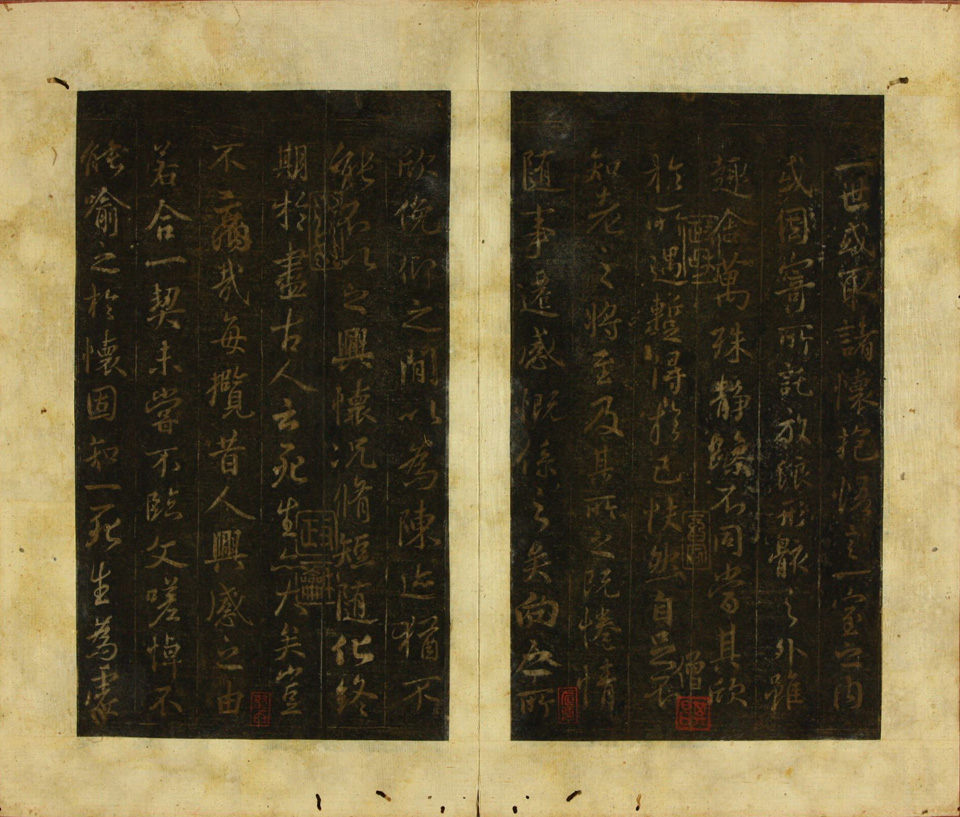 一世或取諸懷抱悟言一室之內
或因寄所託放浪形骸之外雖
趣舍萬殊靜躁不同當其欣
於所遇蹔得於己怏然自足不
僧
知老之將至及其所之既惓情
隨事遷感慨係之矣向之所
欣俛仰之間以為陳迹猶不
能不以之興懷況脩短隨化終
期於盡古人云死生亦大矣豈
不痛哉每攬昔人興感之由
若合一契未嘗不臨文嗟悼不
能喻之於懷固知一死生為虛